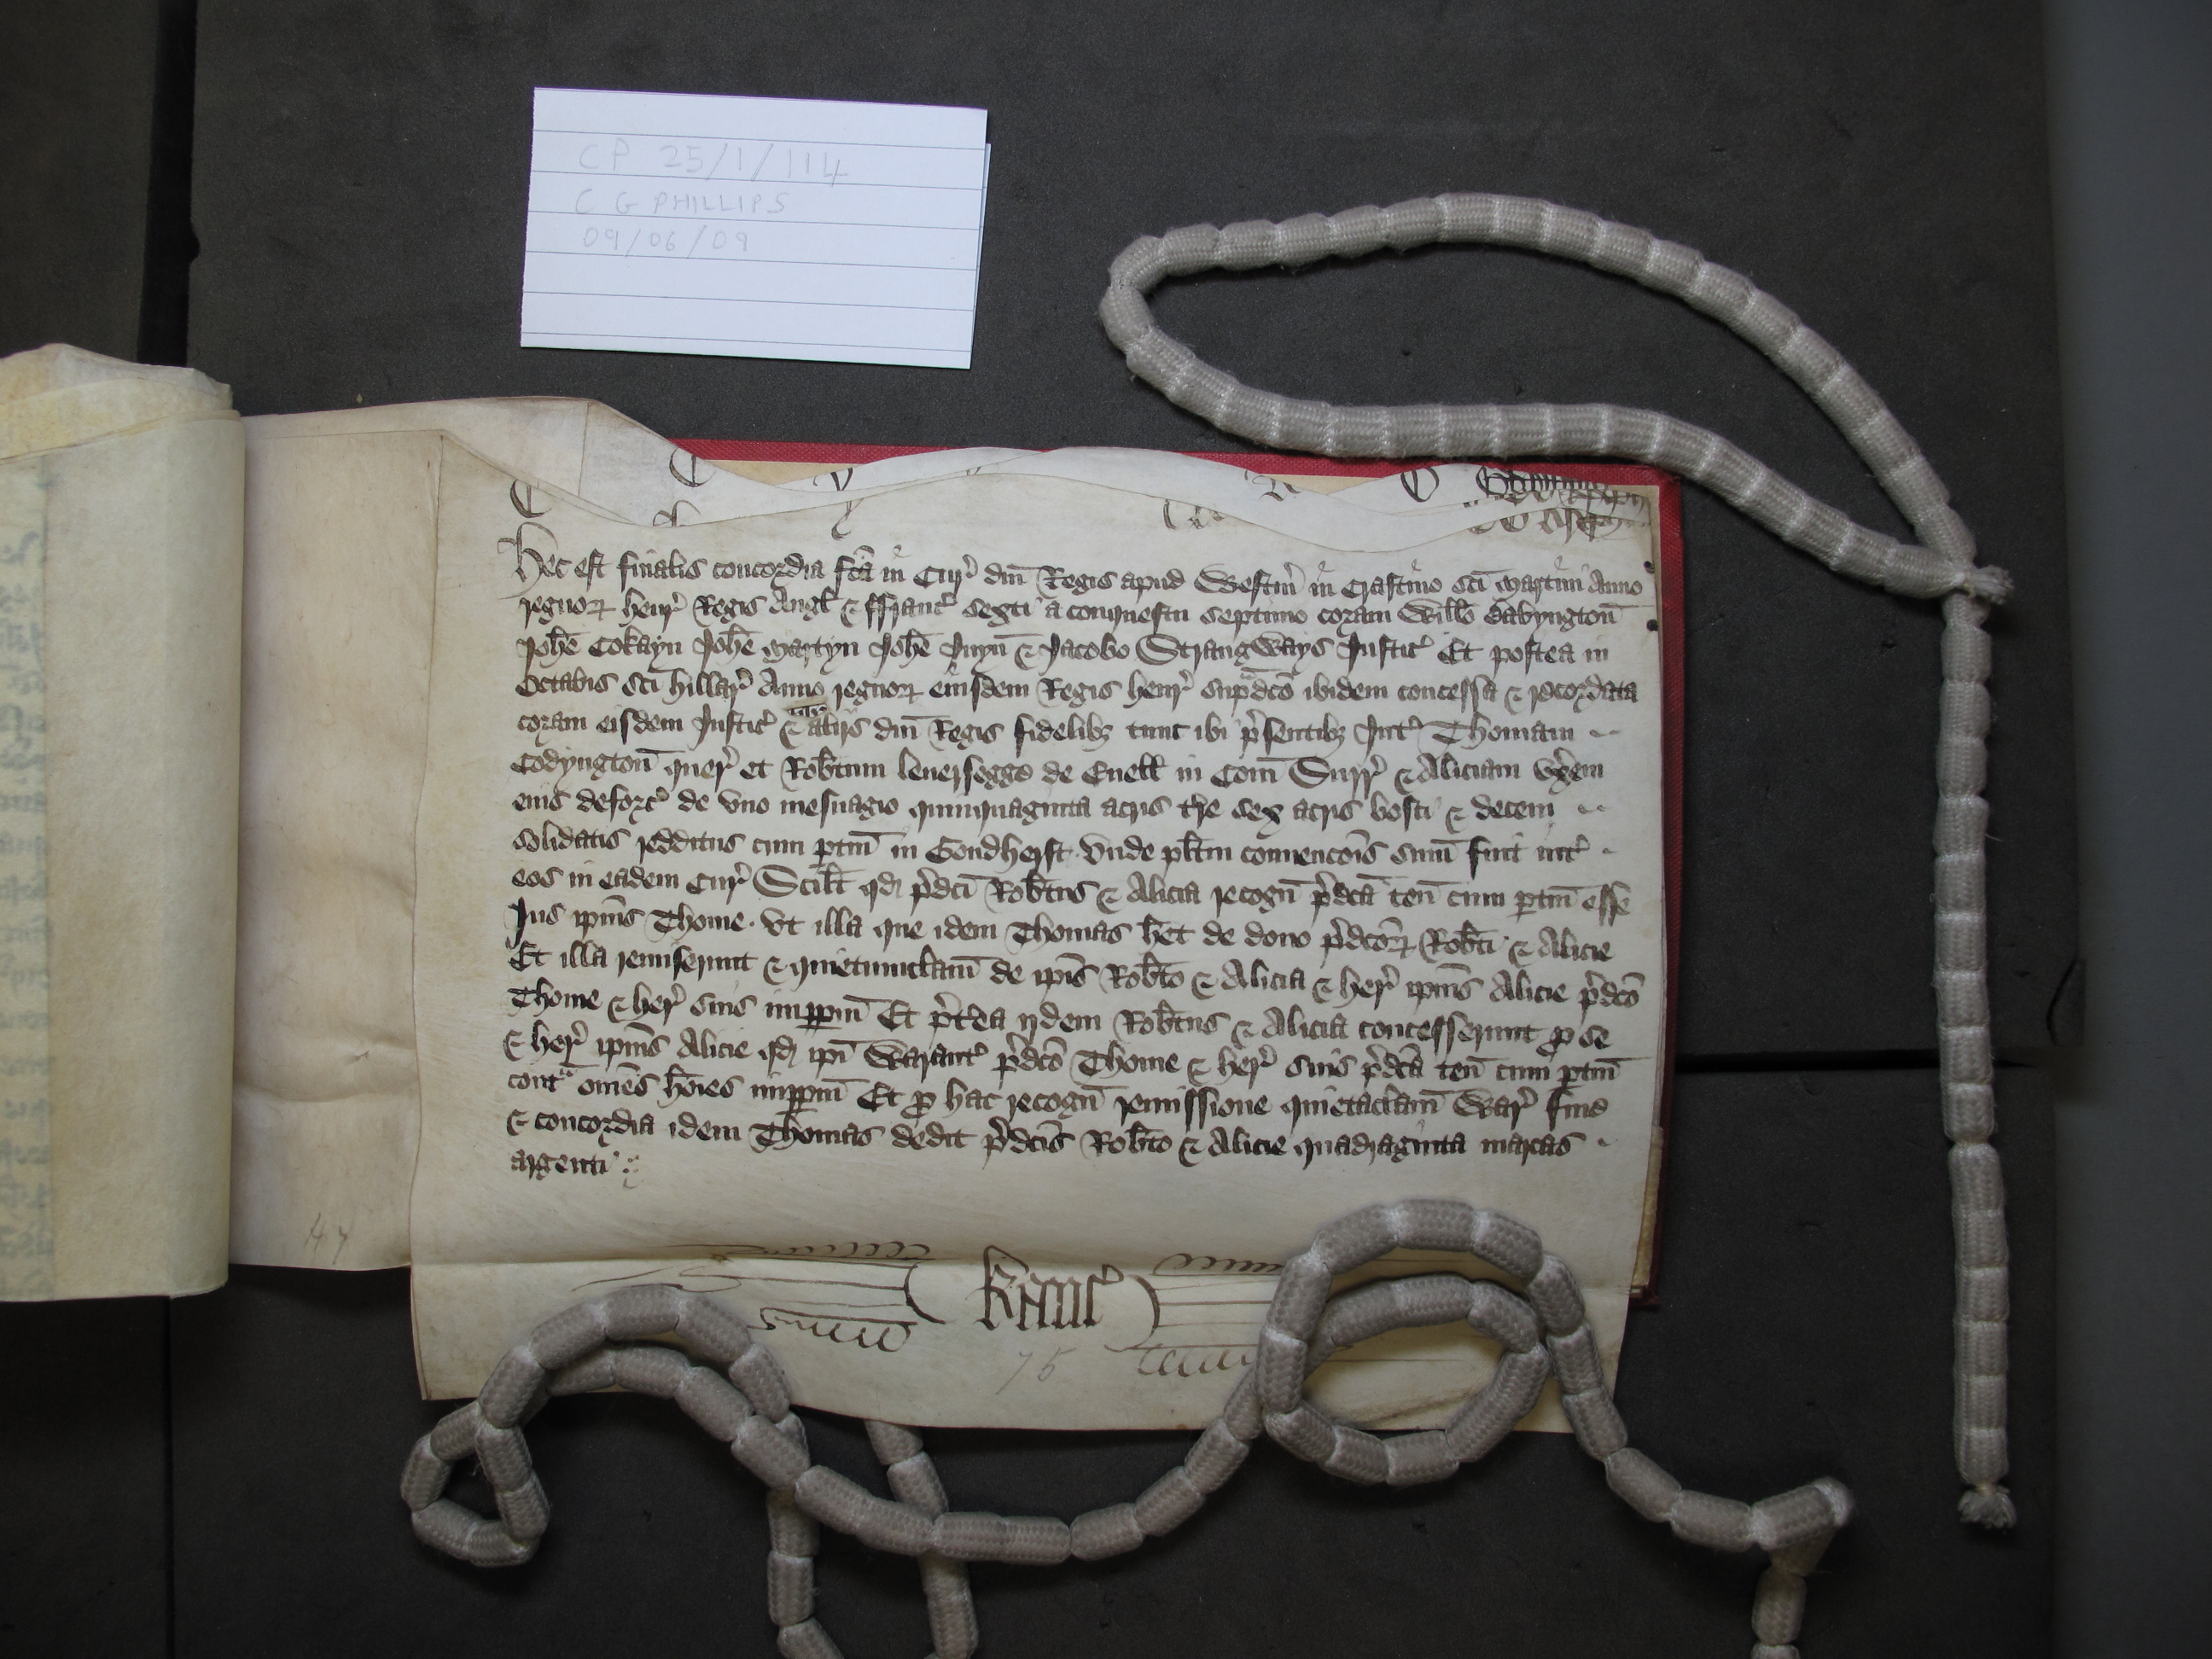 CP 25/1/114
C G PHILLIPS
09/06/09
Hec est finalis concordia fc̄a in Cur̛ dn̄i Regis apud Westm̛ in Crastino sc̄i Martini Anno
regnoꝝ Henr̛ Regis Angl̛ & Franc̛ sexti a conquestu septimo coram Will̄o Babyngton̄
Joh̄e Cokayn Joh̄e Martyn Joh̄e Juyn̄ & Jacobo Strangways Justic̛ Et postea in
Octabis sc̄i Hillar̛ Anno regnoꝝ eiusdem Regis Henr̛ sup̛dc̄o ibidem concessa & recordata
coram eisdem Justic̛ & alijs dn̄i Regis fidelibꝫ tunc ibi p̛sentibꝫ Int̛ Thomam
Codyngton̄ quer̛ et Rob̄tum Leuersegge de Ewell̄ in Com̄ Surr̛ & Aliciam vx̛em
eius deforc̛ de vno mesuagio quinquaginta acris t̛re sex acris bosci & decem
solidatis redditus cum ptin̄ in Goudherst Vnde pl̄itm conuenc̄ois sum̄ fuit int̛
eos in eadem Cur̛ Scil̄t qd̛ p̛dc̄i Rob̄tus & Alicia recogn̄ p̛dc̄a ten̄ cum ptin̄ esse
Jus ip̄ius Thome Vt illa que idem Thomas h̄et de dono p̛dc̄oꝝ Rob̄ti & Alicie
Et illa remiserunt & quietumclam̄ de ip̄is Rob̄to & Alicia & her̛ ip̄ius Alicie p̛dc̄o
Thome & her̛ suis imꝑpm̄ Et p̛t̛ea ijdem Rob̄tus & Alicia concesserunt ꝓ se
& her̛ ip̄ius Alicie qd̛ ip̄i Warant̛ p̛dc̄o Thome & her̛ suis p̛dc̄a ten̄ cum ptin̄
cont̛ om̄es ho̅ies imꝑpm̄ Et ꝓ hac recogn̄ remissione quietaclam̄ War̛ fine
& concordia idem Thomas dedit p̛dc̄is Rob̄to & Alicie quadraginta marcas
argenti
47
Kanc̛
75